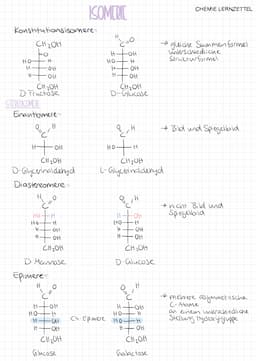 ISOMERIE
CHEMIE LERNZETTEL
Konstitutionsisomere:
CH₂OH
O
HO H
H OH
H OH
CH₂OH
D-Fructose
O H
H OH
HO H
H OH
H OH
CH₂OH
D-Glucose
→ gleiche Summenformel
unterschiedliche
Strukturformel
STEREOISOMERIE
Enantiomere:
O H
H OH
CH₂OH
D-Glycerinaldehyd
O H
HO H
CH₂OH
L-Glycerinaldehyd
→ Bild und Spiegelbild
Diastereomere:
O H
HO H
HO H
H OH
H OH
CH₂OH
D-Mannose
O H
H OH
HO H
H OH
H OH
CH₂OH
D-Glucose
→ nicht Bild und
Spiegelbild
Epimere:
O H
H OH
HO H
H OH
H OH
CH₂OH
Glucose
C4-Epimere
O H
H OH
HO H
HO H
H OH
CH₂OH
Galactose
→ mehrere asymmetrische
C-Atome
an einem unterschiedliche
Stellung Hydroxylgruppe